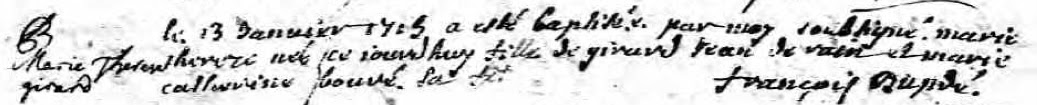 B
le 13 Januier 1715 a esté baptisée par moy soubsigné marie
Marie Therese therere née ce iourd'huy fille de girard Jean de et marie
girard catherine bouré. sa f
françois Dupdé.